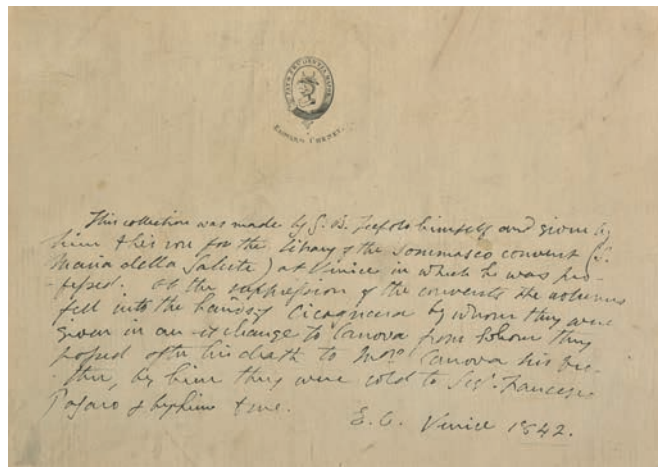 EDWARD CHENEY.
This collection was made by G. B. Tiepolo himself and given by
him to his son for the library of the Sommasco convent (S.
Maria della Salute) at Venice in which he was pro-
-fessed. At the suppression of the convents the volumes
fell into the hands of Cicognara by whom they were
given in an exchange to Canova from whom they
passed after his death to Monr Canova his bro-
-ther, by him they were sold to Sigr. Francesco
Pesaro & by him to me.
E. C. Venice 1842.